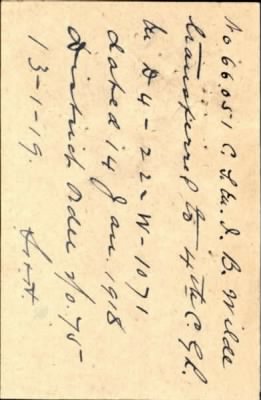 No 66.051 C. Sta. I. B. Wilde
transferred to 4th C. G. R.
D 4-22-W-1071
dated 14 Jan. 1918
District Order No. 75
13-1-19.